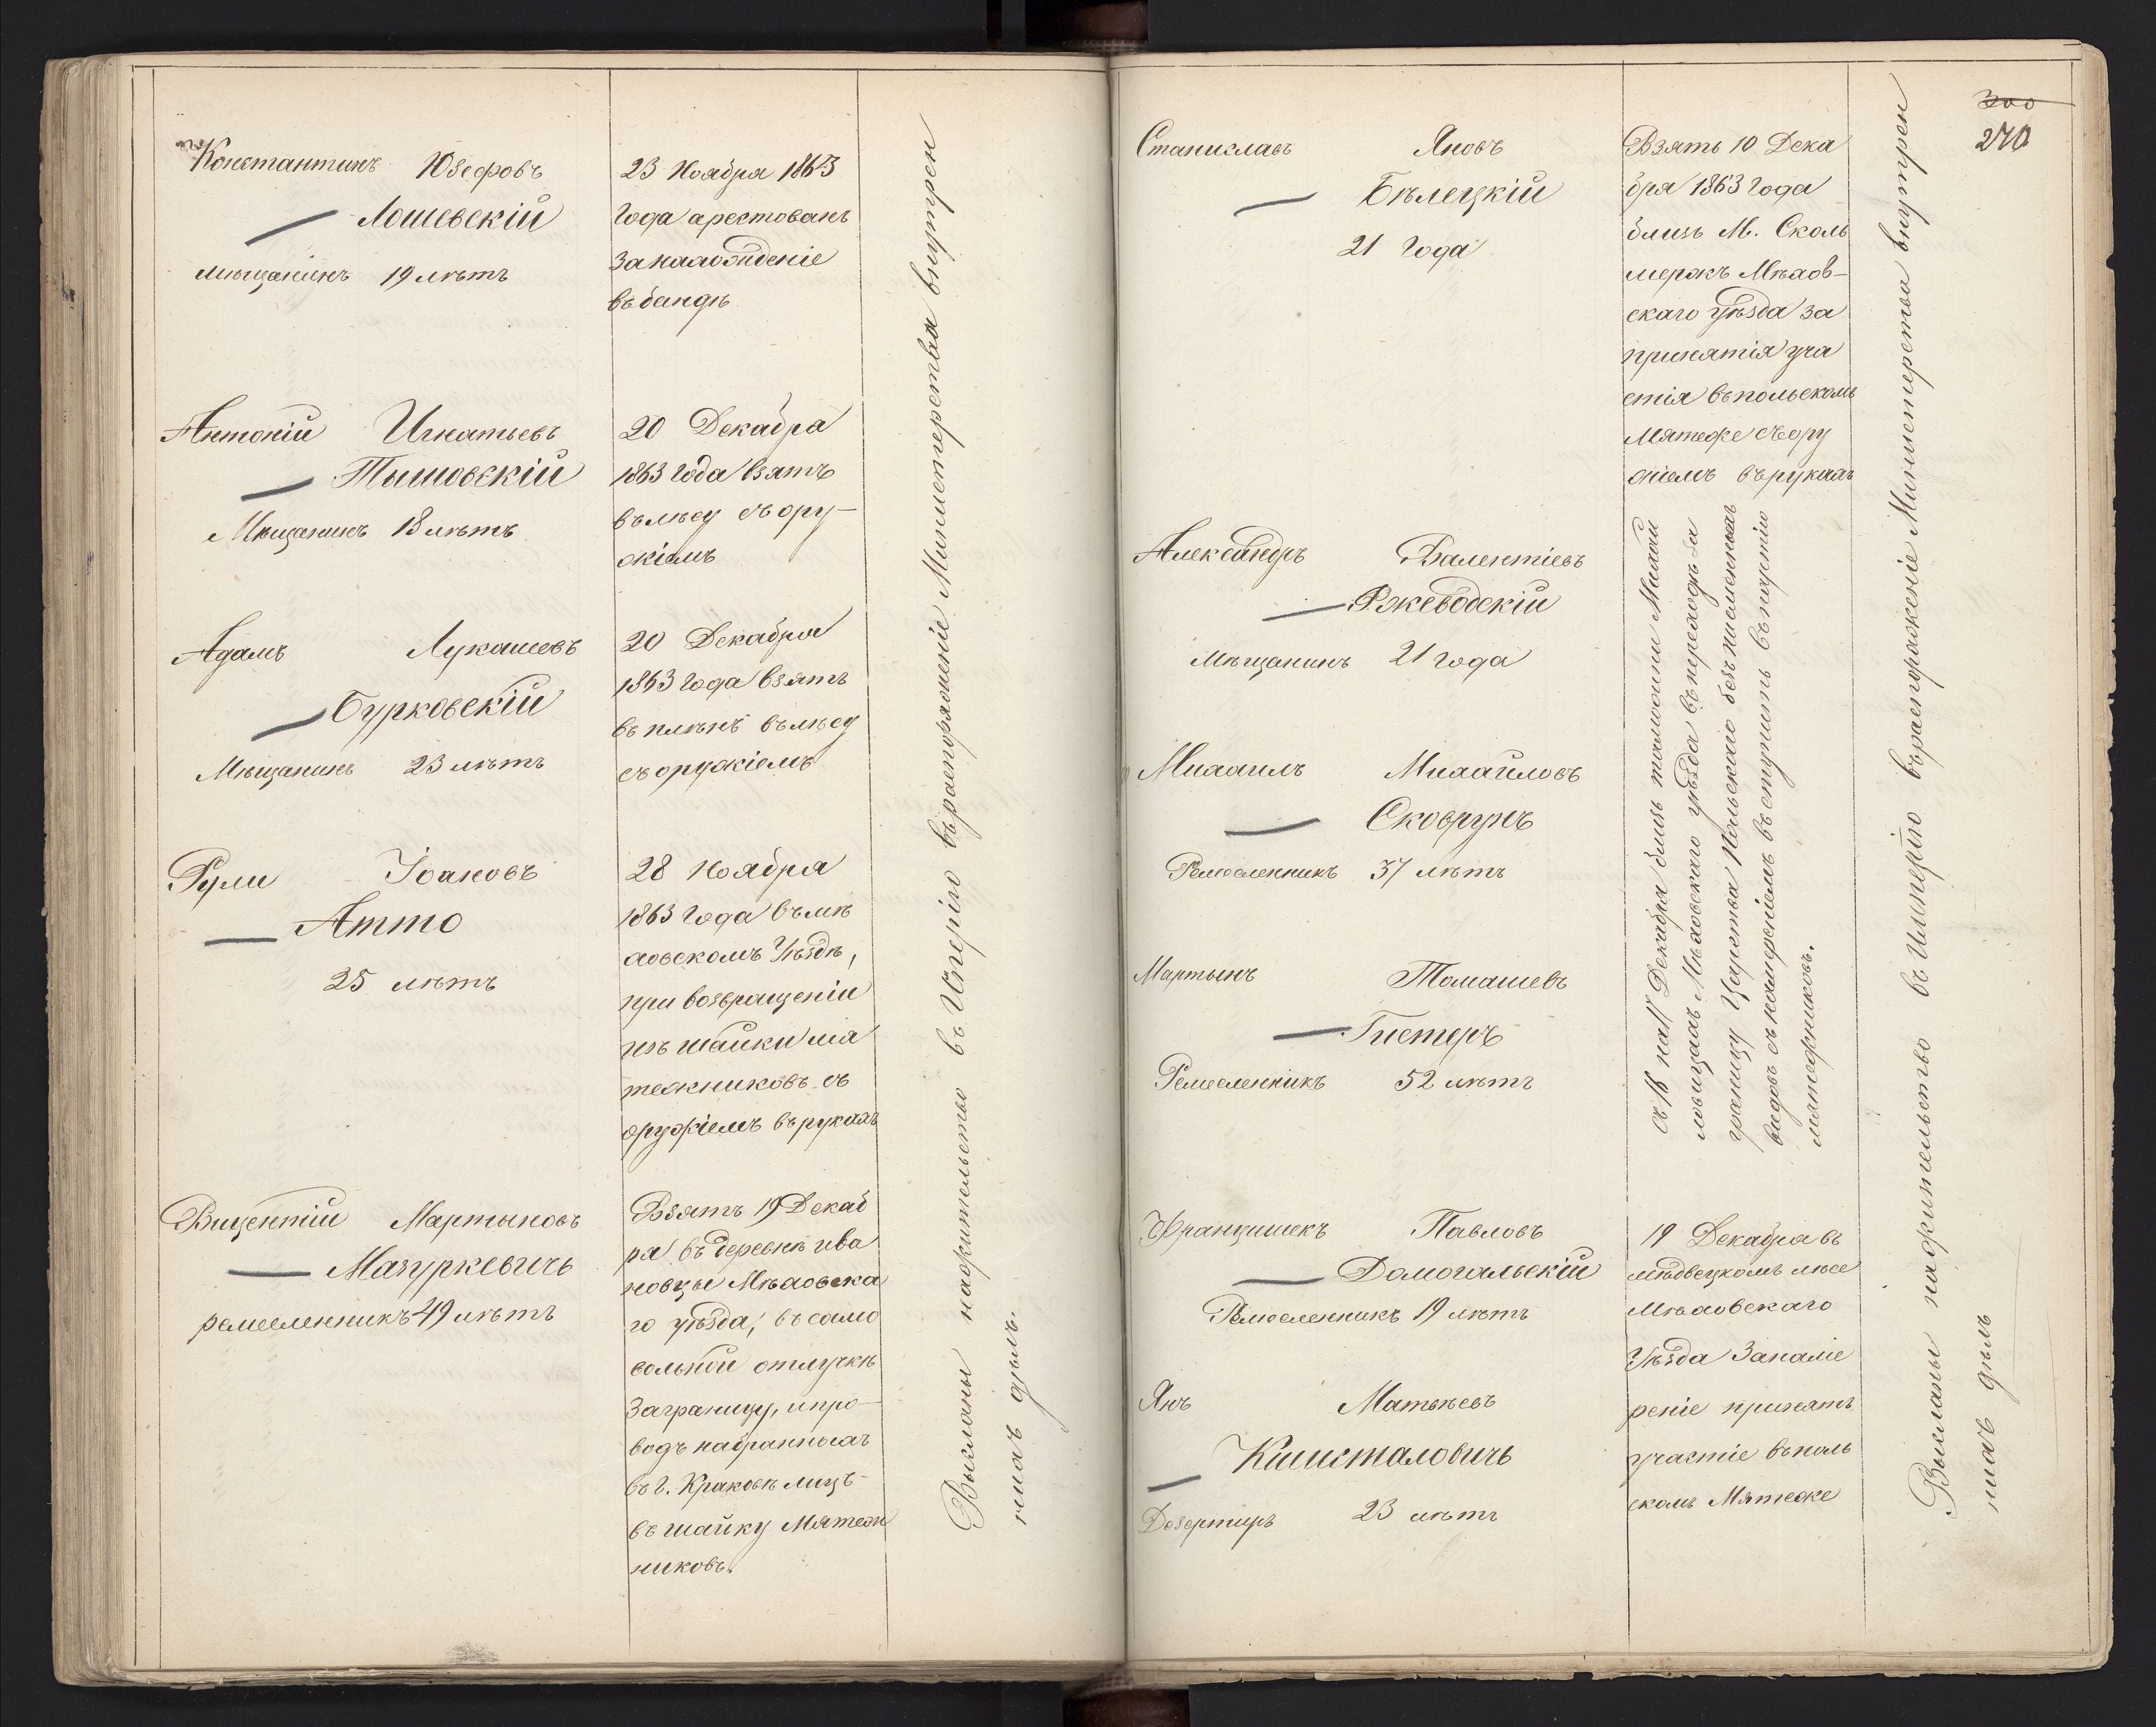 Константинъ Юзефовъ
Лошевскій
мѣщанинъ 19 лѣтъ
23 Ноября 1863
Года арестованъ
за нахожденіе
въ бандѣ
Антоній Игнатьевъ
Тышовскій
Мѣщанинъ 18 лѣтъ
20 Декабря
1863 года взятъ
въ лѣсу съ ору-
жіемъ
Адамъ Лукашевъ
Бурковскій
Мѣщанинъ 23 лѣтъ
20 Декабря
1863 Года взятъ
въ плѣнъ въ лѣсу
съ оружіемъ
Рули Іоановъ
Атто
25 лѣтъ
28 Ноября
1863 Года въ мѣ
ховскомъ Уѣздѣ,
при возвращеніи
изъ шайки мя
тежниковъ съ
оружіемъ въ рукахъ
Вицентій Мартыновъ
Мазуркевичъ
ремесленникъ 49 лѣтъ
Взятъ 19 Декаб
ря въ деревнѣ ива
новцы Мѣховска
го уѣзда, въ само
вольной отлучкѣ
Заграницу, и про-
водъ набранныхъ
въ г. Краковѣ лицъ
въ шайку Мятеж
никовъ.
Высланы на жительство въ Имперію въ распоряженіе Министерства внутрен
нихъ дѣлъ.
300
270
Станиславъ Яновъ
Бѣлецкій
21 Года
Взятъ 10 Дека
бря 1863 Года
близь М. Сколь
мержъ Мѣхов-
скаго уѣзда за
принятія уча
стія въ польскомъ
Мятеже съ ору
жіемъ въ рукахъ
Александръ Валентіевъ
Ржеводскій
Мѣщанинъ 21 года
Михаилъ Михайловъ
Сковрунъ
Ремесленникъ 37 лѣтъ
Мартынъ Томашевъ
Гистеръ
Ремесленникъ 52 лѣтъ
Декабря близь таможни Михай
ловицахъ Мѣховскаго уѣзда въ переходѣ за
границу Царства Польскаго безъ письменныхъ
видовъ съ намѣреніемъ вступить въ партію
мятежниковъ.
Францишекъ Павловъ
Домогальскій
Ремесленникъ 19 лѣтъ
Янъ Матвѣевъ
Кшисталовичъ
Дезертиръ 23 лѣтъ
19 Декабря въ
лѣсе
Мѣховскаго
Уѣзда За намѣ
реніе принять
участіе въ поль
скомъ Мятеже
Высланы на жительство въ Имперію въ распоряженіе Министерства внутрен
нихъ дѣлъ